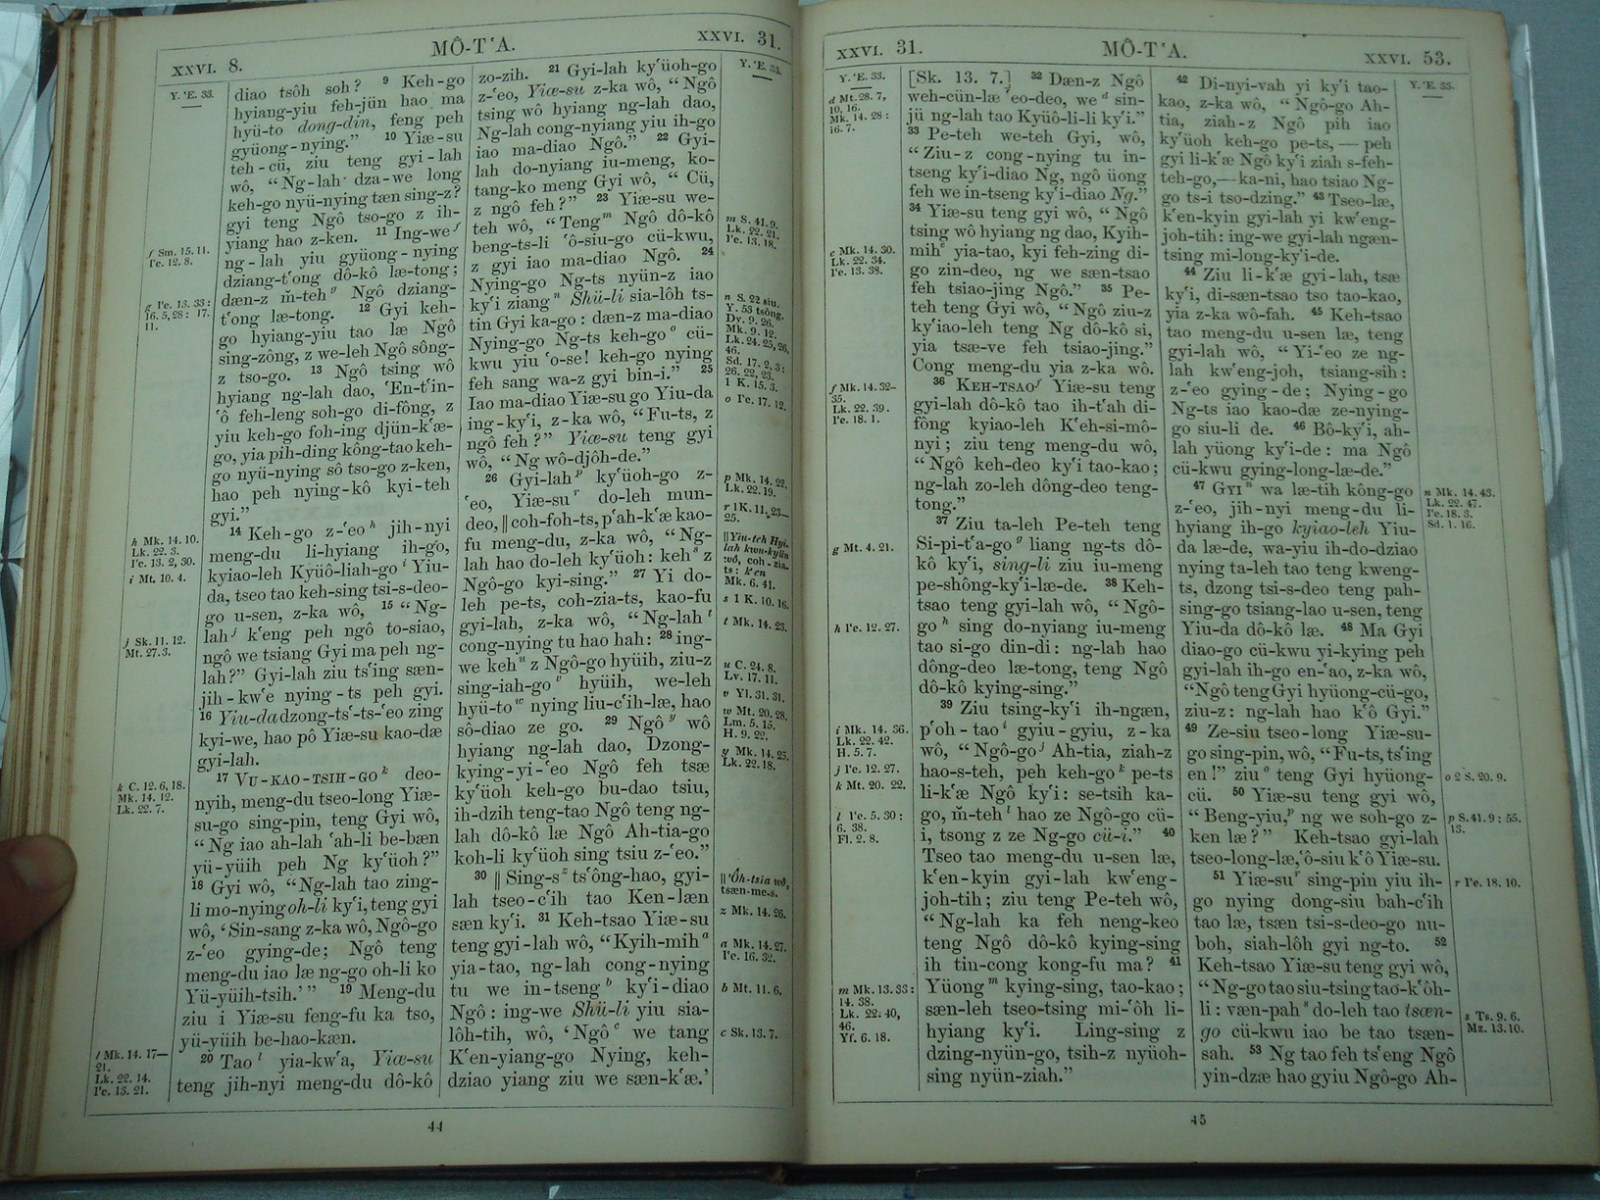 XXVI. 8.
MÔ-T‘A.
XXVI. 31.
Y. ‘E. 33.
f Sm. 15. 11.
I‘e. 12. 8.
g I‘e. 13. 33:
16. 5, 28: 17.
11.
h Mk. 14. 10.
Lk. 22. 3.
I‘e. 13. 2, 30.
i Mt. 10. 4.
j Sk. 11. 12.
Mt. 27. 3.
k C. 12. 6, 18.
Mk. 14. 12.
Lk. 22. 7.
l Mk. 14. 17—
21.
Lk. 22. 14.
I‘e. 13. 21.
diao tsôh soh? 9 Keh-go
hyiang-yiu feh-jün hao ma
hyü-to dong-din, feng peh
gyüong-nying.” 10 Yiæ-su
teh-cü, ziu teng gyi-lah
wô, “Ng-lah dza-we long
keh-go nyü-nying tæn sing-z?
gyi teng Ngô tso-go z ih-
yiang hao z-ken. 11 Ing-we f
ng-lah yiu gyüong-nying
dziang-t‘ong dô-kô læ-tong;
dæn-z m̃-teh g Ngô dziang-
t‘ong læ-tong. 12 Gyi keh-
go hyiang-yiu tao læ Ngô
sing-zông, z we-leh Ngô sông-
z tso-go. 13 Ngô tsing wô
hyiang ng-lah dao, ‘En-t‘in-
‘ô feh-leng soh-go di-fông, z
yiu keh-go foh-ing djün-k‘æ-
go, yia pih-ding kông-tao keh-
go nyü-nying sô tso-go z-ken,
hao peh nying-kô kyi-teh
gyi.”
14 Keh-go z-‘eo h jih-nyi
meng-du li-hyiang ih-go,
kyiao-leh Kyüô-liah-go i Yiu-
da, tseo tao keh-sing tsi-s-deo-
go u-sen, z-ka wô, 15 “Ng-
lah j k‘eng peh ngô to-siao,
ngô we tsiang Gyi ma peh ng-
lah?” Gyi-lah ziu ts‘ing sæn-
jih-kw‘e nying-ts peh gyi.
16 Yiu-da dzong-ts‘-ts-‘eo zing
kyi-we, hao pô Yiæ-su kao-dæ
gyi-lah.
17 VU-KAO-TSIH-GO k deo-
nyih, meng-du tseo-long Yiæ-
su-go sing-pin, teng Gyi wô,
“Ng iao ah-lah ‘ah-li be-bæn
yü-yüih peh Ng ky‘üoh?”
18 Gyi wô, “Ng-lah tao zing-
li mo-nying oh-li ky‘i, teng gyi
wô, ‘Sin-sang z-ka wô, Ngô-go
z-‘eo gying-de; Ngô teng
meng-du iao læ ng-go oh-li ko
Yü-yüih-tsih.’” 19 Meng-du
ziu i Yiæ-su feng-fu ka tso,
yü-yüih be-hao-kæn.
20 Tao l yia-kw‘a, Yiæ-su
teng jih-nyi meng-du dô-kô
zo-zih. 21 Gyi-lah ky‘üoh-go
z-‘eo, Yiæ-su z-ka wô, “Ngô
tsing wô hyiang ng-lah dao,
Ng-lah cong-nyiang yiu ih-go
iao ma-diao Ngô.” 22 Gyi-
lah do-nyiang iu-meng, ko-
tang-ko meng Gyi wô, “Cü,
z ngô feh?” 23 Yiæ-su we-
teh wô, “Teng m Ngô dô-kô
beng-ts-li ‘ô-siu-go cü-kwu,
z gyi iao ma-diao Ngô. 24
Nying-go Ng-ts nyün-z iao
ky‘i ziang n Shü-li sia-lôh ts-
tin Gyi ka-go: dæn-z ma-diao
Nying-go Ng-ts keh-go o cü-
kwu yiu ‘o-se! keh-go nying
feh sang wa-z gyi bin-i.” 25
Iao ma-diao Yiæ-su go Yiu-da
ing-ky‘i, z-ka wô, “Fu-ts, z
ngô feh?” Yiæ-su teng gyi
wô, “Ng wô-djôh-de.”
26 Gyi-lah p ky‘üoh-go z-
‘eo, Yiæ-su r do-leh mun-
deo, ‖ coh-foh-ts, p‘ah-k‘æ kao-
fu meng-du, z-ka wô, “Ng-
lah hao do-leh ky‘üoh: keh s z
Ngô-go kyi-sing.” 27 Yi do-
leh pe-ts, coh-zia-ts, kao-fu
gyi-lah, z-ka wô, “Ng-lah t
cong-nying tu hao hah: 28 ing-
we keh u z Ngô-go hyüih, ziu-z
sing-iah-go v hyüih, we-leh
hyü-to w nying liu-c‘ih-læ, hao
sô-diao ze go. 29 Ngô y wô
hyiang ng-lah dao, Dzong-
kying-yi-‘eo Ngô feh tsæ
ky‘üoh keh-go bu-dao tsiu,
ih-dzih teng-tao Ngô teng ng-
lah dô-kô læ Ngô Ah-tia-go
koh-li ky‘üoh sing tsiu z-‘eo.”
30 ‖ Sing-s z ts‘ông-hao, gyi-
lah tseo-c‘ih tao Ken-læn
sæn ky‘i. 31 Keh-tsao Yiæ-su
teng gyi-lah wô, “Kyih-mih a
yia-tao, ng-lah cong-nying
tu we in-tseng b ky‘i-diao
Ngô: ing-we Shü-li yiu sia-
lôh-tih, wô, ‘Ngô c we tang
K‘en-yiang-go Nying, keh-
dziao yiang ziu we sæn-k‘æ.’
m S. 41. 9.
Lk. 22. 21.
I‘e. 13. 18.
n S. 22 siu.
Y. 53 tsông.
Dv. 9. 26.
Mk. 9. 12.
Lk. 24. 25, 26,
46.
Sd. 17. 2, 3:
26. 22, 23.
1 K. 15. 3.
o I‘e. 17. 12.
p Mk. 14. 22.
Lk. 22. 19.
r 1 K. 11. 23—
25.
‖ Yiu-teh Hyi-
lah kwu-kyün
wô, coh-zia-
ts: k‘en
Mk. 6. 41.
s 1 K. 10. 16.
t Mk. 14. 23.
u C. 24. 8.
Lv. 17. 11.
v Yl. 31. 31.
w Mt. 20. 28.
Lm. 5. 15.
H. 9. 22.
y Mk. 14. 25.
Lk. 22. 18.
‖ ‘Ôh-tsia wô,
tsæn-me-s.
z Mk. 14. 26.
a Mk. 14. 27.
I‘e. 16. 32.
b Mt. 11. 6.
c Sk. 13. 7.
44
XXVI. 31.
MÔ-T‘A.
XXVI. 53.
Y. ‘E. 33.
d Mt. 28. 7,
10, 16.
Mk. 14. 28:
16. 7.
e Mk. 14. 30.
Lk. 22. 34.
I‘e. 13. 38.
f Mk. 14. 32-
35.
Lk. 22. 39.
I‘e. 18. 1.
g Mt. 4. 21.
h I‘e. 12. 27.
i Mk. 14. 36.
Lk. 22. 42.
H. 5. 7.
j I‘e. 12. 27.
k Mt. 20. 22.
l I‘e. 5. 30:
6. 38.
Fl. 2. 8.
m Mk. 13. 33:
14. 38.
Lk. 22. 40,
46.
Yf. 6. 18.
[Sk. 13. 7.] 32 Dæn-z Ngô
weh-cün-læ ‘eo-deo, we d sin-
jü ng-lah tao Kyüô-li-li ky‘i.”
33 Pe-teh we-teh Gyi, wô,
“Ziu-z cong-nying tu in-
tseng ky‘i-diao Ng, ngô üong
feh we in-tseng ky‘i-diao Ng.”
34 Yiæ-su teng gyi wô, “Ngô
tsing wô hyiang ng dao, Kyih-
mih e yia-tao, kyi feh-zing di-
go zin-deo, ng we sæn-tsao
feh tsiao-jing Ngô.” 35 Pe-
teh teng Gyi wô, “Ngô ziu-z
ky‘iao-leh teng Ng dô-kô si,
yia tsæ-ve feh tsiao-jing.”
Cong meng-du yia z-ka wô.
36 KEH-TSAO f Yiæ-su teng
gyi-lah dô-kô tao ih-t‘ah di-
fông kyiao-leh K‘eh-si-mô-
nyi; ziu teng meng-du wô,
“Ngô keh-deo ky‘i tao-kao;
ng-lah zo-leh dông-deo teng-
tong.”
37 Ziu ta-leh Pe-teh teng
Si-pi-t‘a-go g liang ng-ts dô-
kô ky‘i, sing-li ziu iu-meng
pe-shông-ky‘i-læ-de. 38 Keh-
tsao teng gyi-lah wô, “Ngô-
go h sing do-nyiang iu-meng
tao si-go din-di: ng-lah hao
dông-deo læ-tong, teng Ngô
dô-kô kying-sing.”
39 Ziu tsing-ky‘i ih-ngæn,
p‘oh-tao i gyiu-gyiu, z-ka
wô, “Ngô-go j Ah-tia, ziah-z
hao-s-teh, peh keh-go k pe-ts
li-k‘æ Ngô ky‘i: se-tsih ka-
go, m̃-teh l hao ze Ngô-go cü-
i, tsong z ze Ng-go cü-i.” 40
Tseo tao meng-du u-sen læ,
k‘en-kyin gyi-lah kw‘eng-
joh-tih; ziu teng Pe-teh wô,
“Ng-lah ka feh neng-keo
teng Ngô dô-kô kying-sing
ih tin-cong kong-fu ma? 41
Yüong m kying-sing, tao-kao;
sæn-leh tseo-tsing mi-‘ôh li-
hyiang ky‘i. Ling-sing z
dzing-nyün-go, tsih-z nyüoh-
sing nyün-ziah.”
42 Di-nyi-vah yi ky‘i tao-
kao, z-ka wô, “Ngô-go Ah-
tia, ziah-z Ngô pih iao
ky‘üoh keh-go pe-ts, — peh
gyi li-k‘æ Ngô ky‘i ziah s-feh-
teh-go,— ka-ni, hao tsiao Ng-
go ts-i tso-dzing.” 43 Tseo-læ,
k‘en-kyin gyi-lah yi kw‘eng-
joh-tih: ing-we gyi-lah ngæn-
tsing mi-long-ky‘i-de.
44 Ziu li-k‘æ gyi-lah, tsæ
ky‘i, di-sæn-tsao tso tao-kao,
yia z-ka wô-fah. 45 Keh-tsao
tao meng-du u-sen læ, teng
gyi-lah wô, “Yi-‘eo ze ng-
lah kw‘eng-joh, tsiang-sih:
z-‘eo gying-de; Nying-go
Ng-ts iao kao-dæ ze-nying-
go siu-li de. 46 Bô-ky‘i, ah-
lah yüong ky‘i-de: ma Ngô
cü-kwu gying-long-læ-de.”
47 GYI n wa læ-tih kông-go
z-‘eo, jih-nyi meng-du li-
hyiang ih-go kyiao-leh Yiu-
da læ-de, wa-yiu ih-do-dziao
nying ta-leh tao teng kweng-
ts, dzong tsi-s-deo teng pah-
sing-go tsiang-lao u-sen, teng
Yiu-da dô-kô læ. 48 Ma Gyi
diao-go cü-kwu yi-kying peh
gyi-lah ih-go en-‘ao, z-ka wô,
“Ngô teng Gyi hyüong-cü-go,
ziu-z: ng-lah hao k‘ô Gyi.”
49 Ze-siu tseo-long Yiæ-su-
go sing-pin, wô, “Fu-ts, ts‘ing
en!” ziu o teng Gyi hyüong-
cü. 50 Yiæ-su teng gyi wô,
“Beng-yiu, p ng we soh-go z-
ken læ?” Keh-tsao gyi-lah
tseo-long-læ, ‘ô-siu k‘ô Yiæ-su.
51 Yiæ-su r sing-pin yiu ih-
go nying dong-siu bah-c‘ih
tao læ, tsæn tsi-s-deo-go nu-
boh, siah-lôh gyi ng-to. 52
Keh-tsao Yiæ-su teng gyi wô,
“Ng-go tao siu-tsing tao-k‘ôh-
li: væn-pah s do-leh tao tsæn-
go cü-kwu iao be tao tsæn-
sah. 53 Ng tao feh ts‘eng Ngô
yin-dzæ hao gyiu Ngô-go Ah-
Y. ‘E. 33.
n Mk. 14. 43.
Lk. 22. 47.
I‘e. 18. 3.
Sd. 1. 16.
o 2 S. 20. 9.
p S. 41. 9: 55.
13.
r I‘e. 18. 10.
s Ts. 9. 6.
Mz. 13. 10.
45